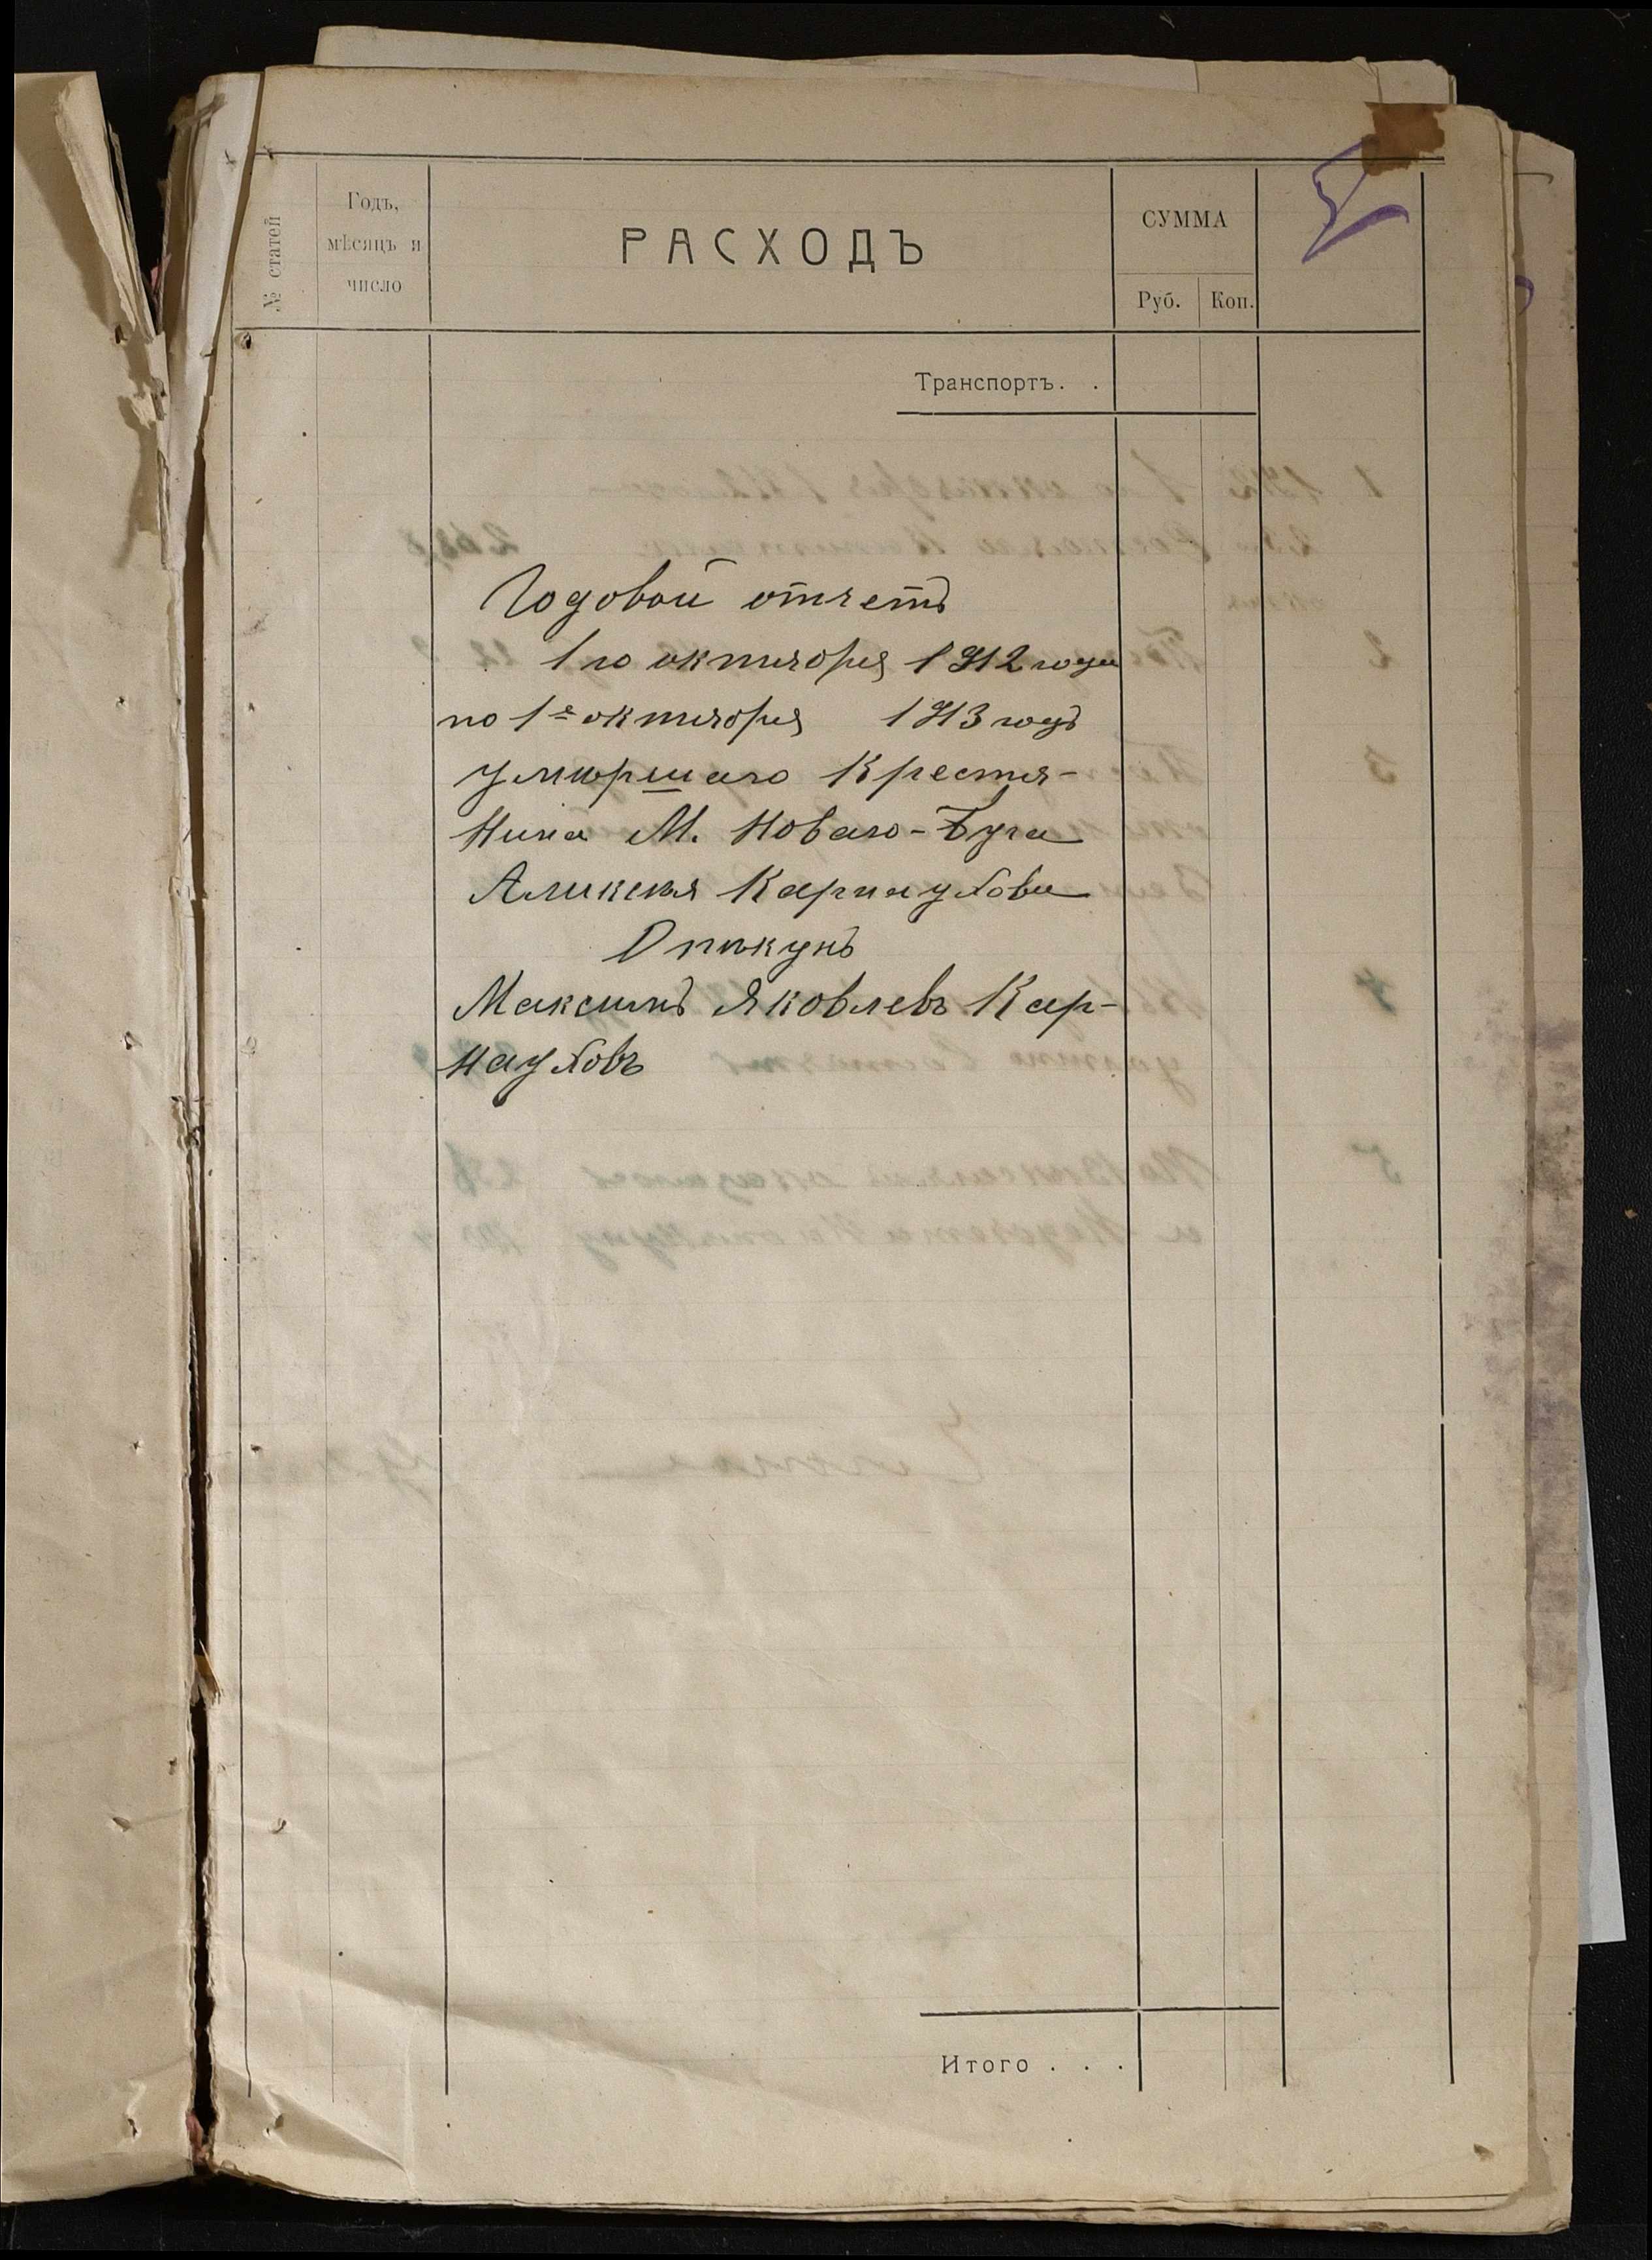 № статей
Годъ,
мѣсяцъ и
число
РАСХОДЪ
СУММА
Руб.
Коп.
Транспортъ. .
Годовой отчетъ
1го октября 1912 года
по 1е октября 1913 годъ
умершаго Крестя-
нина М. Новаго-Буга
Алексея Карнаухова
Опекунъ
Максимъ Яковлевъ Кар-
науховъ
Итого . . .